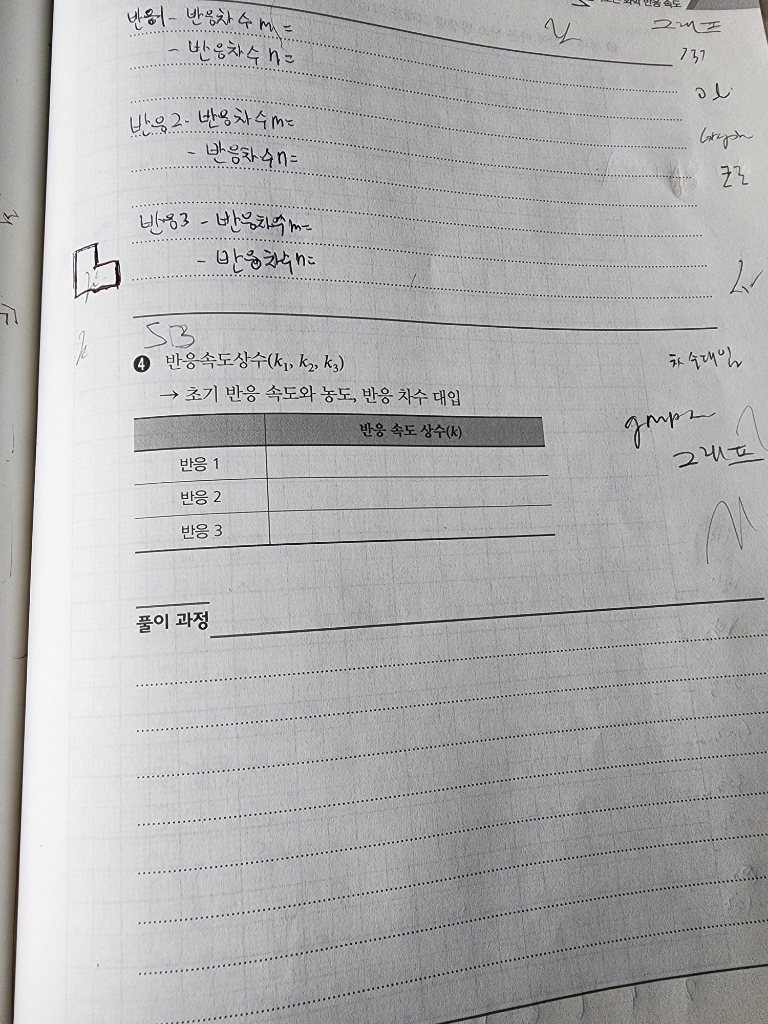 화학 반응 속도
반응1 - 반응차수 m =
- 반응차수 n =
그래프
반응2 - 반응차수 m=
- 반응차수 n=
반응3 - 반응차수 m=
- 반응차수 n=
❹ 반응속도상수(k₁, k₂, k₃)
→ 초기 반응 속도와 농도, 반응 차수 대입
차수대입
반응 속도 상수(k)
그래프
반응 1
반응 2
반응 3
풀이 과정